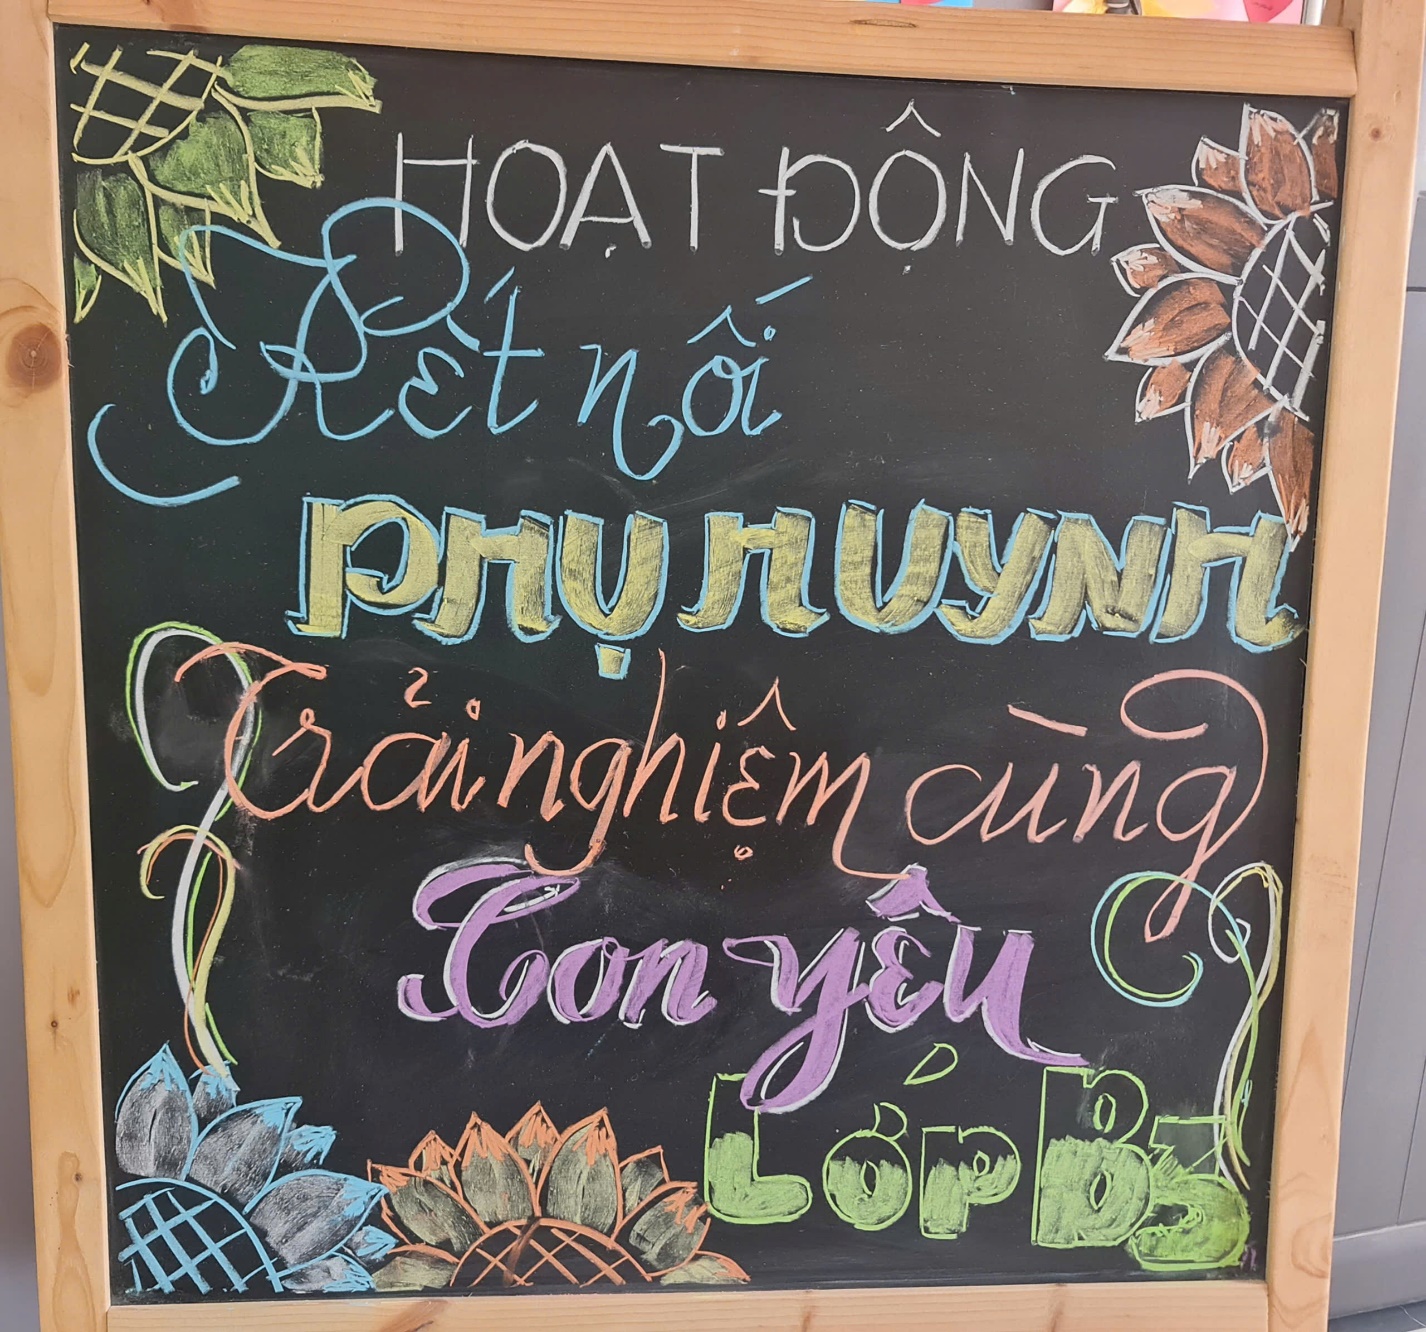 HOẠT ĐỘNG
Kết nối
PHỤ HUYNH
Trải nghiệm cùng
Con yêu
Lớp B5